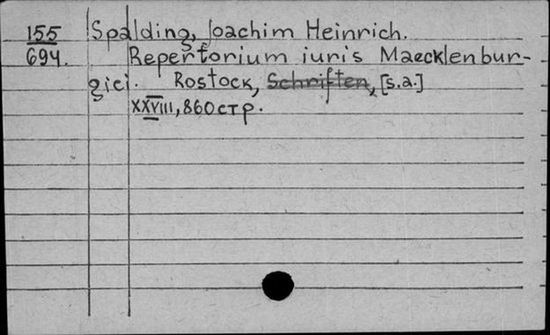 155 Spalding, Joachim Heinrich.
694. Repertorium iuris Maecklenbur-
gici. Rostock, Schriften, [s.a.]
XXVIII, 860 стр.